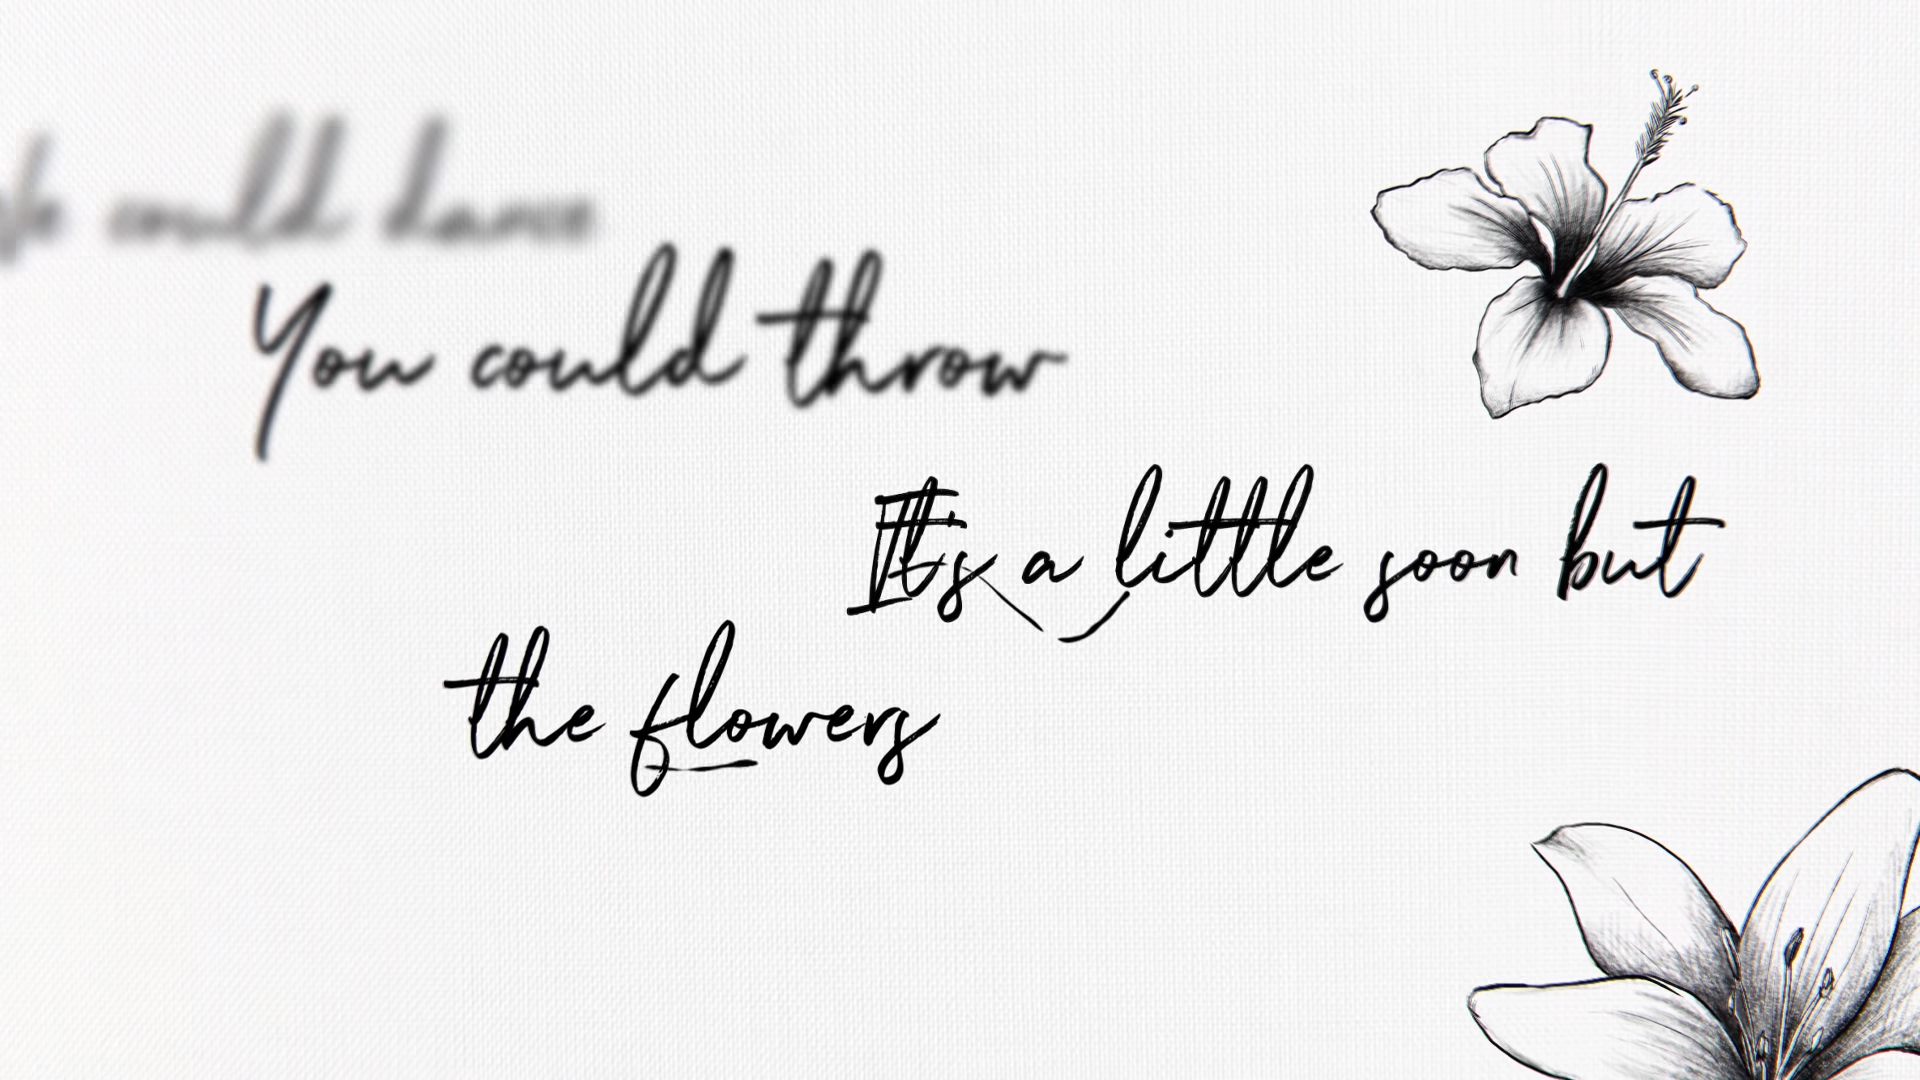 We could dance
You could throw
It's a little soon but
the flowers